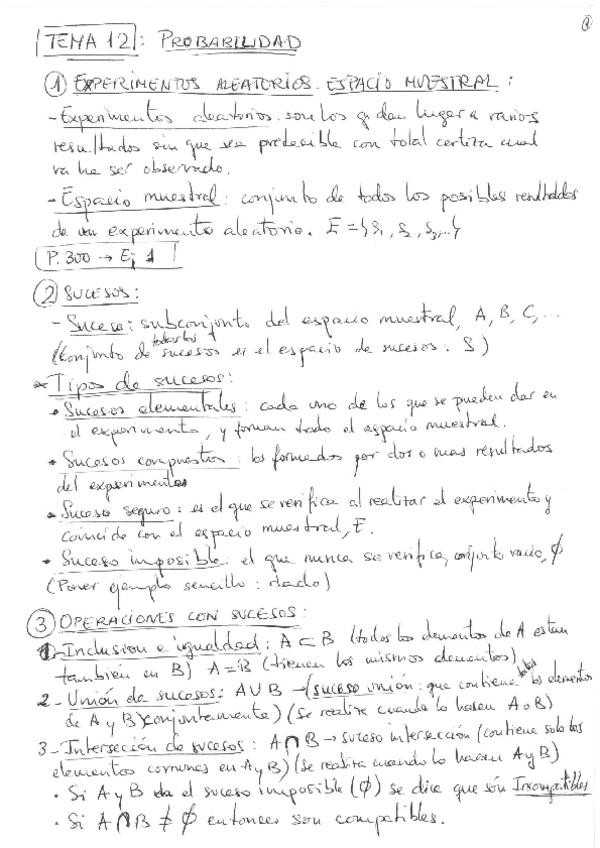 ①
TEMA 12: PROBABILIDAD
① EXPERIMENTOS ALEATORIOS. ESPACIO MUESTRAL:
- Experimentos aleatorios. son los q dan lugar a varios
resultados sin que sea predecible con total certeza cual
va ha ser observado.
- Espacio muestral: conjunto de todos los posibles resultados
de un experimento aleatorio. E = {S₁, S₂, S₃,...}
P. 300 → Ej 1
② SUCESOS:
- Suceso: subconjunto del espacio muestral, A, B, C, ...
(Conjunto de todos los sucesos es el espacio de sucesos. S)
* Tipos de sucesos:
• Sucesos elementales: cada uno de los que se pueden dar en
el experimento, y forman todo el espacio muestral.
• Sucesos compuestos: los formados por dos o mas resultados
del experimento
• Suceso seguro: es el que se verifica al realizar el experimento y
coincide con el espacio muestral, E.
• Suceso imposible: el que nunca se verifica, conjunto vacio, ∅
(Poner ejemplo sencillo: dado)
③ OPERACIONES CON SUCESOS:
1- Inclusion e igualdad: A ⊂ B (todos los elementos de A estan
también en B) A = B (tienen los mismos elementos)
2- Unión de sucesos: A ∪ B → (suceso unión: que contiene todos los elementos
de A y B conjuntamente) (Se realiza cuando lo hacen A o B)
3- Intersección de sucesos: A ∩ B → suceso intersección (contiene solo los
elementos comunes en A y B) (se realiza cuando lo hacen A y B)
• Si A y B da el suceso imposible (∅) se dice que són Incompatibles
• Si A ∩ B ≠ ∅ entonces son compatibles.